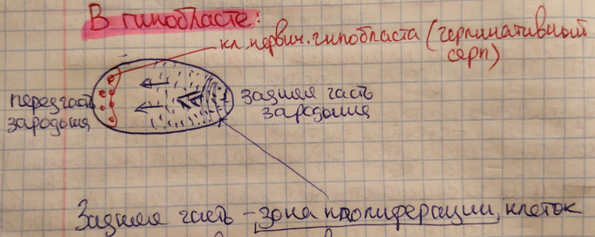 В гипобласте:
кл. первич. гипобласта (герминативный
серп)
перед. часть
зародыша
задняя часть
зародыша
Задняя часть – зона пролиферации клеток